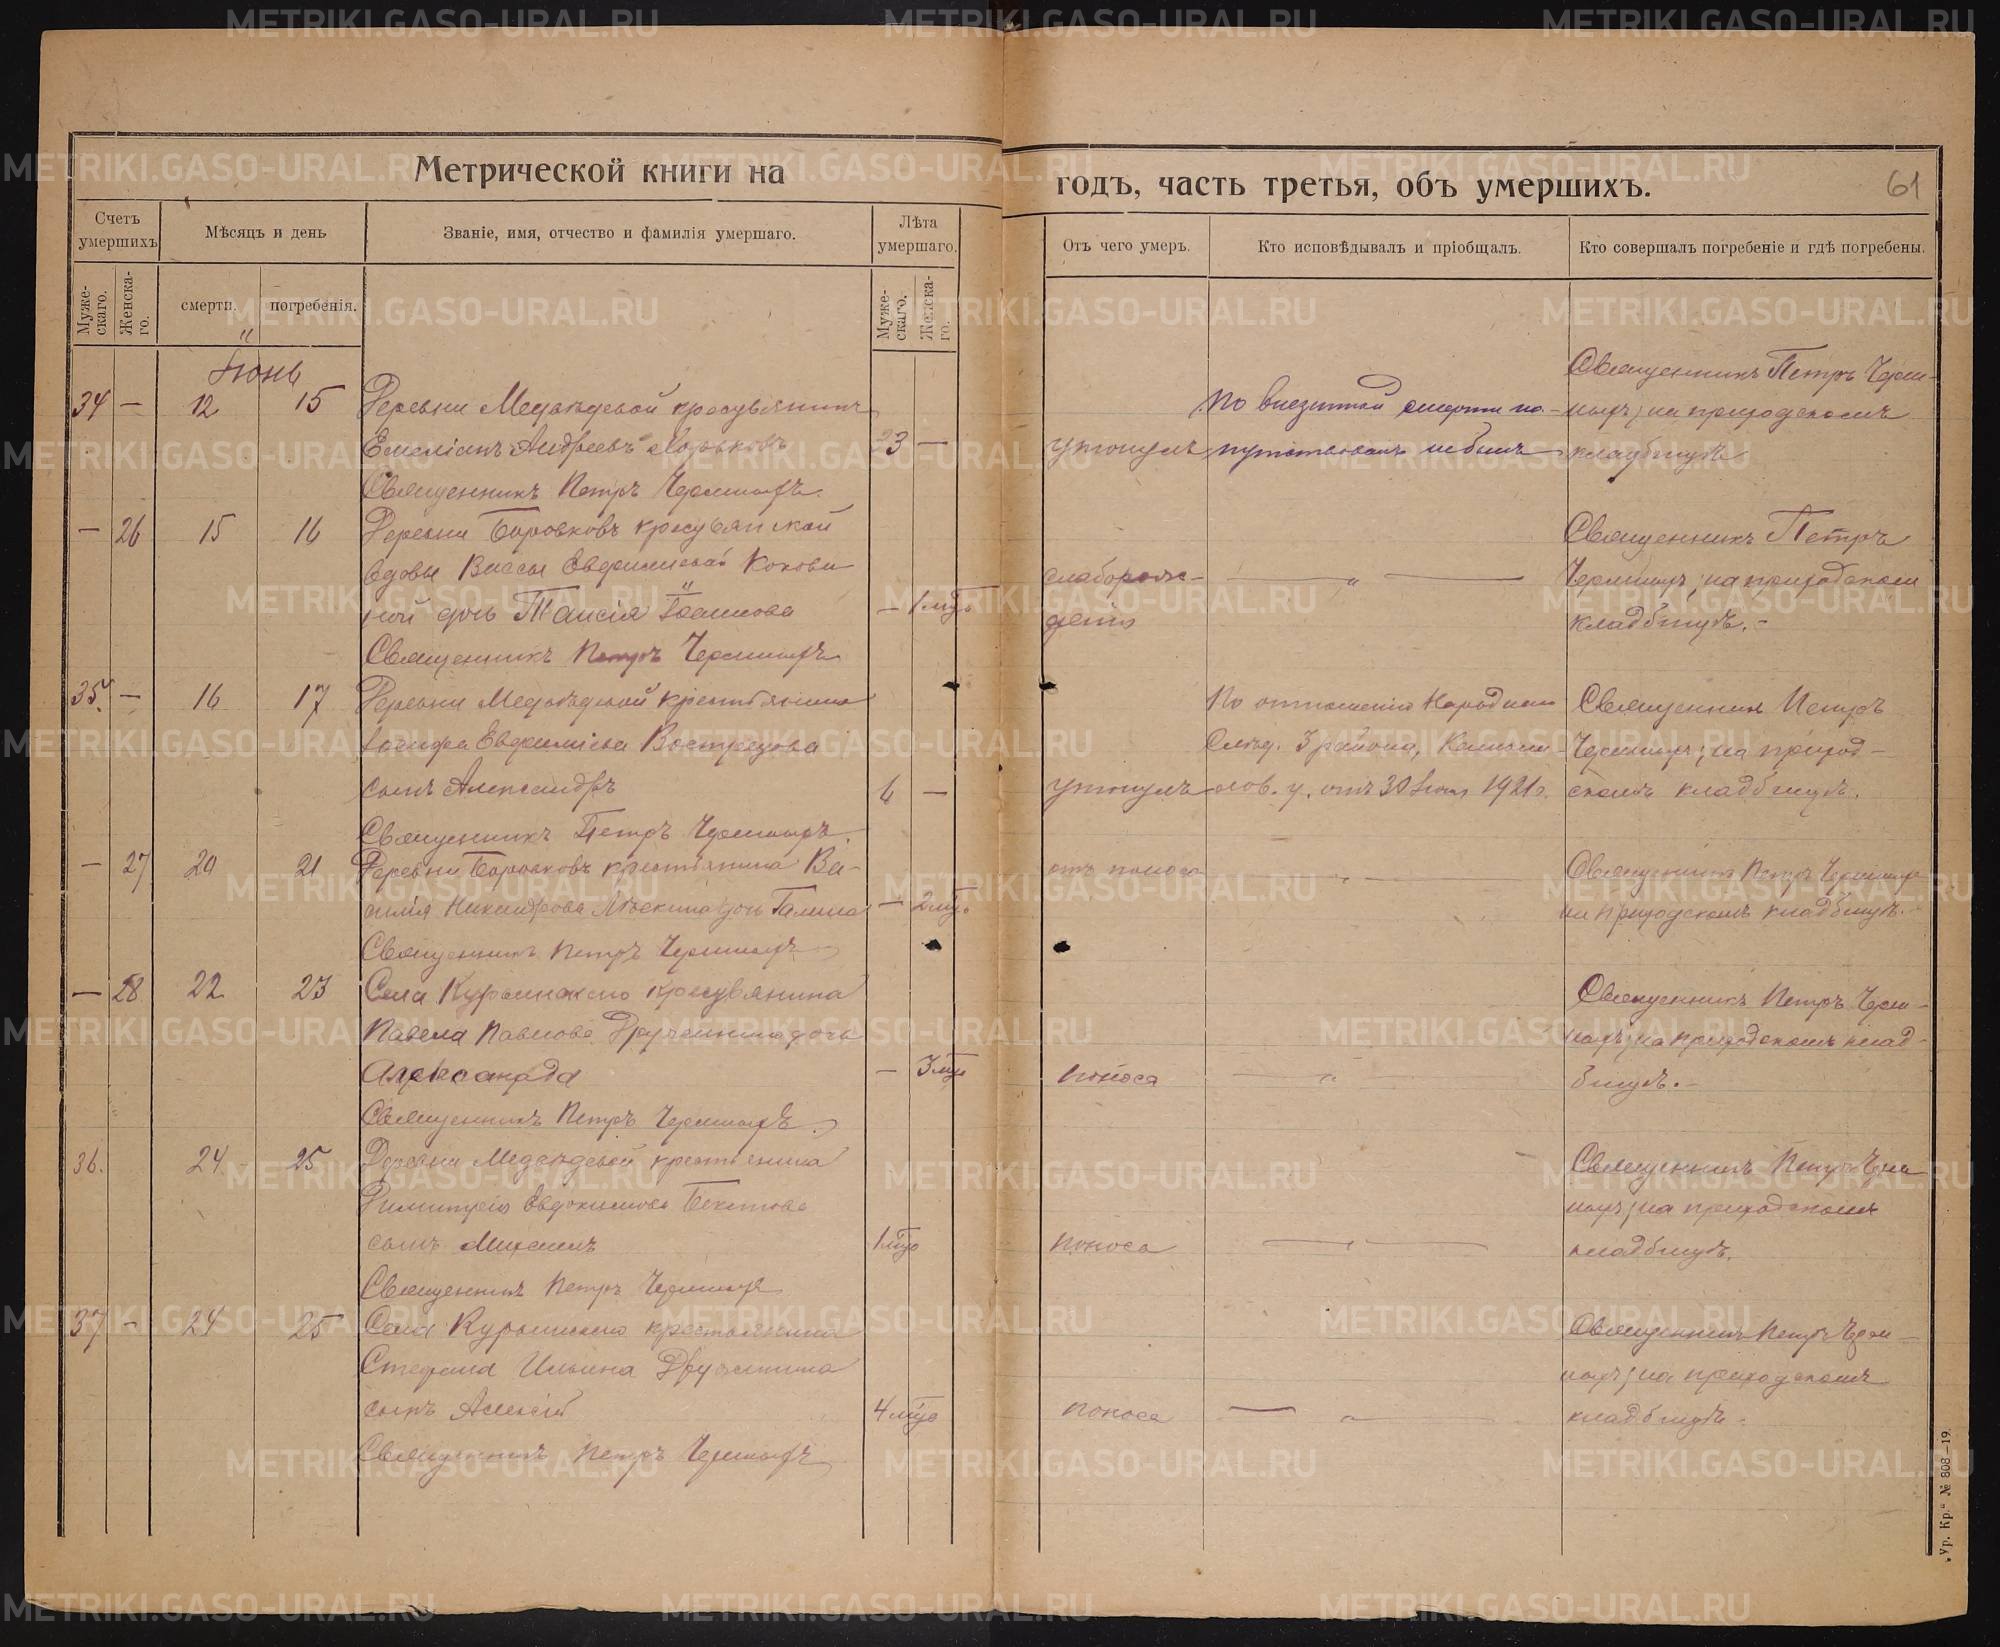 Метрической книги на годъ, часть третья, объ умершихъ. 61
Счетъ умершихъ. Мѣсяцъ и день Званіе, имя, отчество и фамилія умершаго. Лѣта умершаго. Отъ чего умеръ. Кто исповѣдывалъ и пріобщалъ. Кто совершалъ погребеніе и гдѣ погребены.
Муже-скаго. Женска-го. смерти. погребенія. Муже-скаго. Женска-го.
Іюнь
Священникъ Петръ Черем-
34 — 12 15 Деревни Медвѣдевой крестьянинъ По внезапной смерти на- ныхъ; на приходскомъ
Емеліанъ Андреевъ Хорьковъ 23 — утонулъ путствованъ не былъ кладбищѣ
Священникъ Петръ
— 26 15 16 Деревни Боровковъ крестьянской Священникъ Петръ
вдовы Вассы Евфиміевой Кокови- слаборож- — " — на приходскомъ
ной дочь Таисія Іоаннова — 1 мѣс. денія кладбищѣ.-
Священникъ Петръ
35. — 16 17 Деревни Медвѣдевой крестьянина По отношенію Народнаго Священникъ Петръ
Іосифа Евфиміева Вострецова Слѣд. 3 района, Камыш- на приход-
сынъ Александръ 6 — утонулъ лов. у. отъ 30 1921 г. скомъ кладбищѣ.
Священникъ Петръ
— 27 20 21 Деревни Боровковъ крестьянина Ва- отъ поноса — " — Священникъ Петръ
силія Никандрова дочь Галина — 2 мѣс. на приходскомъ кладбищѣ.-
Священникъ Петръ
— 28 22 23 Села Курьинскаго крестьянина Священникъ Петръ
Павла Павлова Дружинина дочь на приходскомъ клад-
Александра — 3 мѣс. поноса — " — бищѣ.-
Священникъ Петръ
36. 24 25 Деревни Медвѣдевой крестьянина Священникъ Петръ
Димитрія Евдокимова Бекетова на приходскомъ
сынъ Михаилъ 1 мѣс. поноса — " — кладбищѣ.
Священникъ Петръ
37 - 24 25 Села Курьинскаго крестьянина Священникъ Петръ
Стефана Ильина Дружинина на приходскомъ
сынъ Алексій 4 мѣс. поноса — " — кладбищѣ.
Священникъ Петръ
„Ур. Кр." № 808—19.
METRIKI.GASO-URAL.RU